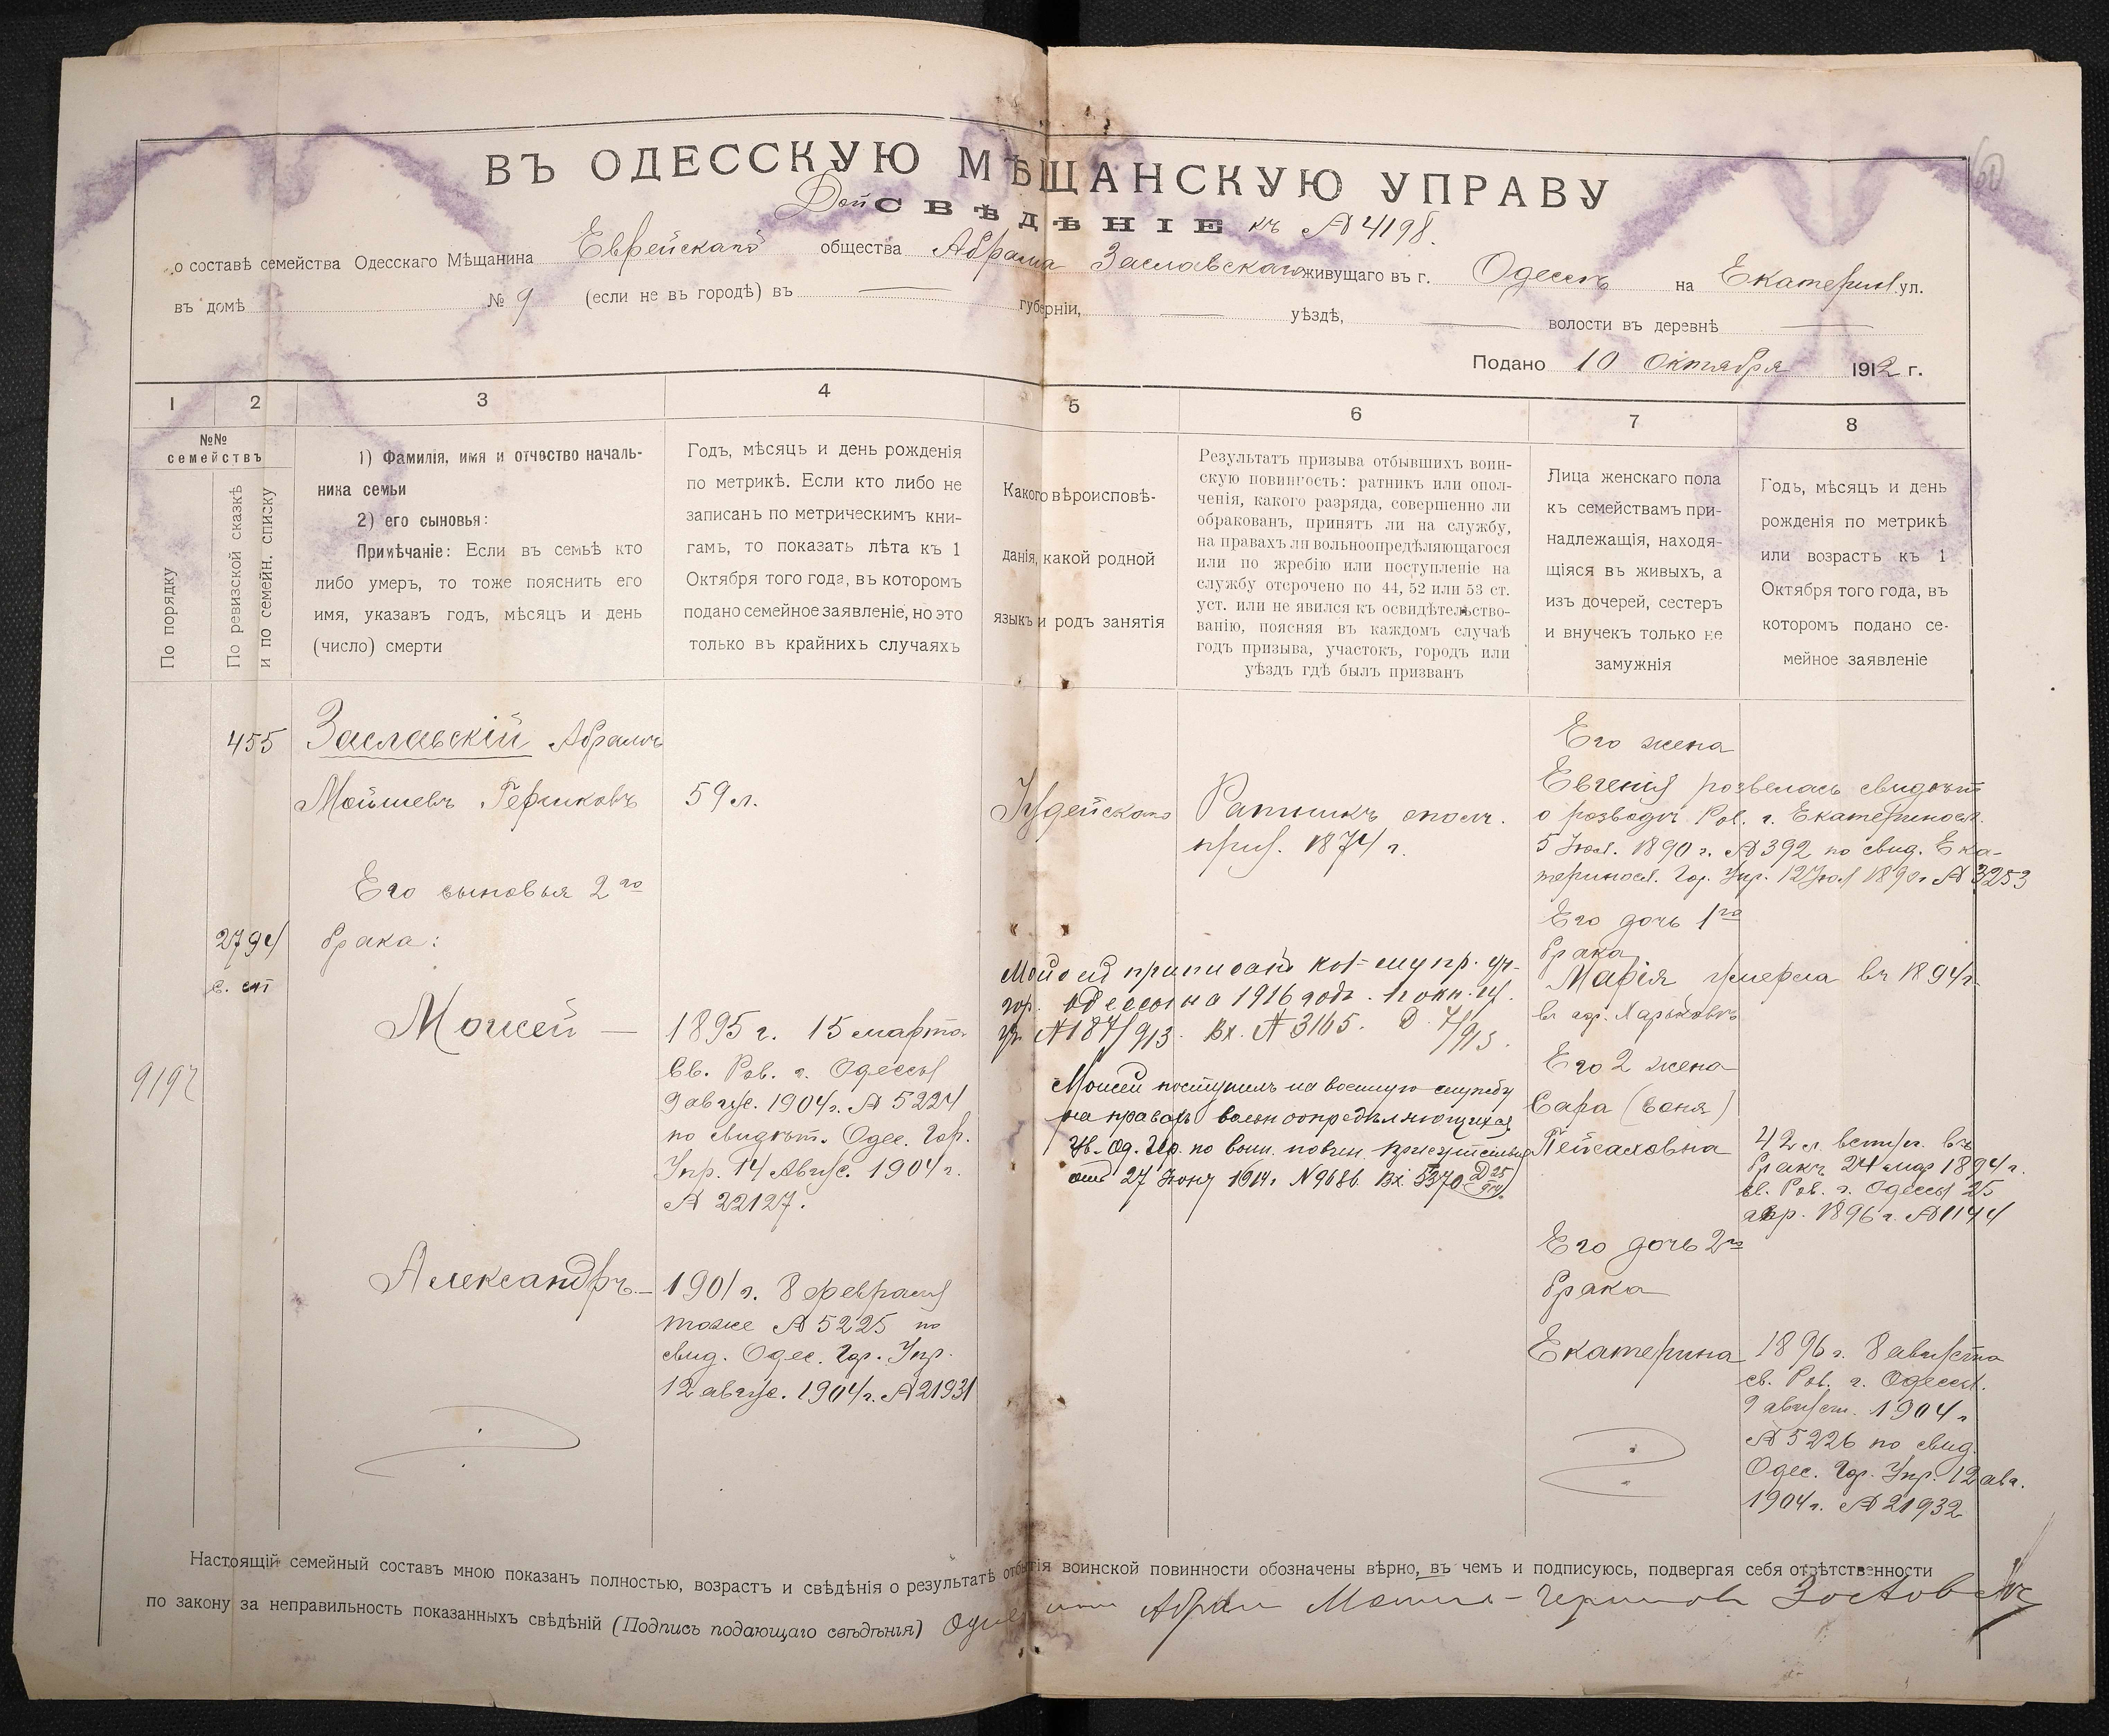 60
ВЪ ОДЕССКУЮ МѢЩАНСКУЮ УПРАВУ
СВѢДѢНІЕ къ № 4198.
о составѣ семейства Одесскаго Мѣщанина Еврейскаго общества Абрама Заславскаго живущаго въ г. Одессѣ на Екатерин. ул.
въ домѣ № 9 (если не въ городѣ) въ губерніи, уѣздѣ, волости въ деревнѣ
Подано 10 Октября 1912 г.
1 2 3 4 5 6 7 8
№№ семействъ
По порядку
По ревизской сказкѣ и по семейн. списку
1) Фамилія, имя и отчество началь-
ника семьи
2) его сыновья:
Примѣчаніе: Если въ семьѣ кто
либо умеръ, то тоже пояснить его
имя, указавъ годъ, мѣсяцъ и день
(число) смерти
Годъ, мѣсяцъ и день рожденія
по метрикѣ. Если кто либо не
записанъ по метрическимъ кни-
гамъ, то показать лѣта къ 1
Октября того года, въ которомъ
подано семейное заявленіе, но это
только въ крайнихъ случаяхъ
Какого вѣроисповѣ-
данія, какой родной
языкъ и родъ занятія
Результатъ призыва отбывшихъ воин-
скую повинность: ратникъ или опол-
ченія, какого разряда, совершенно ли
обракованъ, принятъ ли на службу,
на правахъ ли вольноопредѣляющагося
или по жребію или поступленіе на
службу отсрочено по 44, 52 или 53 ст.
уст. или не явился къ освидѣтельство-
ванію, поясняя въ каждомъ случаѣ
годъ призыва, участокъ, городъ или
уѣздъ гдѣ былъ призванъ
Лица женскаго пола
къ семействамъ при-
надлежащія, находя-
щіяся въ живыхъ, а
изъ дочерей, сестеръ
и внучекъ только не
замужнія
Годъ, мѣсяцъ и день
рожденія по метрикѣ
или возрастъ къ 1
Октября того года, въ
которомъ подано се-
мейное заявленіе
455
Заславскій Абрамъ
Мойшевъ Гершковъ
59 л.
Его сыновья 2го
2794
брака:
9197
Моисей —
1895 г. 15 марта
Св. Рав. г. Одессы
9 август. 1904 г. № 5224
по свидѣт. Одес. Гор.
Упр. 14 Август. 1904 г.
№ 22127.
Александръ. —
1901 г. 8 февраля
тоже № 5225 по
свид. Одес. Гор. Упр.
12 август. 1904 г. № 21931
Іудейскаго
Ратникъ ополч.
приз. 1874 г.
Моисей приписанъ
гор. Одессы на 1916 годъ.
№ 187/913. Вх. № 3165. Д 7/913.
Моисей поступилъ на военную службу
на правахъ вольноопредѣляющихся
Ув. Од. Гор. по воин. повин. присутствія
отъ 27 Іюня 1914 г. № 9686. Вх. 5370
Его жена
Евгенія розвелась свидѣт.
о розводѣ Рав. г. Екатериносл.
5 Іюл. 1890 г. № 392 по свид. Ека-
теринос. Гор. Упр. 12 Іюл 1890 г № 3253
Его дочь 1го
брака
Марія умерла въ 1894 г.
въ гор. Харьковѣ
Его 2 жена
Сара (Соня)
Пейсаховна
42 л. вступ. въ
бракъ 24 мар 1894 г.
св. Рав. г. Одессы 25
апр. 1896 г. № 1144
Его дочь 2го
брака
Екатерина
1896 г. 8 августа
св. Рав. г. Одессы.
9 август. 1904 г
№ 5226 по свид.
Одес. Гор. Упр. 12 авг.
1904 г. № 21932
Настоящій семейный составъ мною показанъ полностью, возрастъ и свѣдѣнія о результатѣ отбытія воинской повинности обозначены вѣрно, въ чемъ и подписуюсь, подвергая себя отвѣтственности
по закону за неправильность показанныхъ свѣдѣній (Подпись подающаго свѣдѣнія)